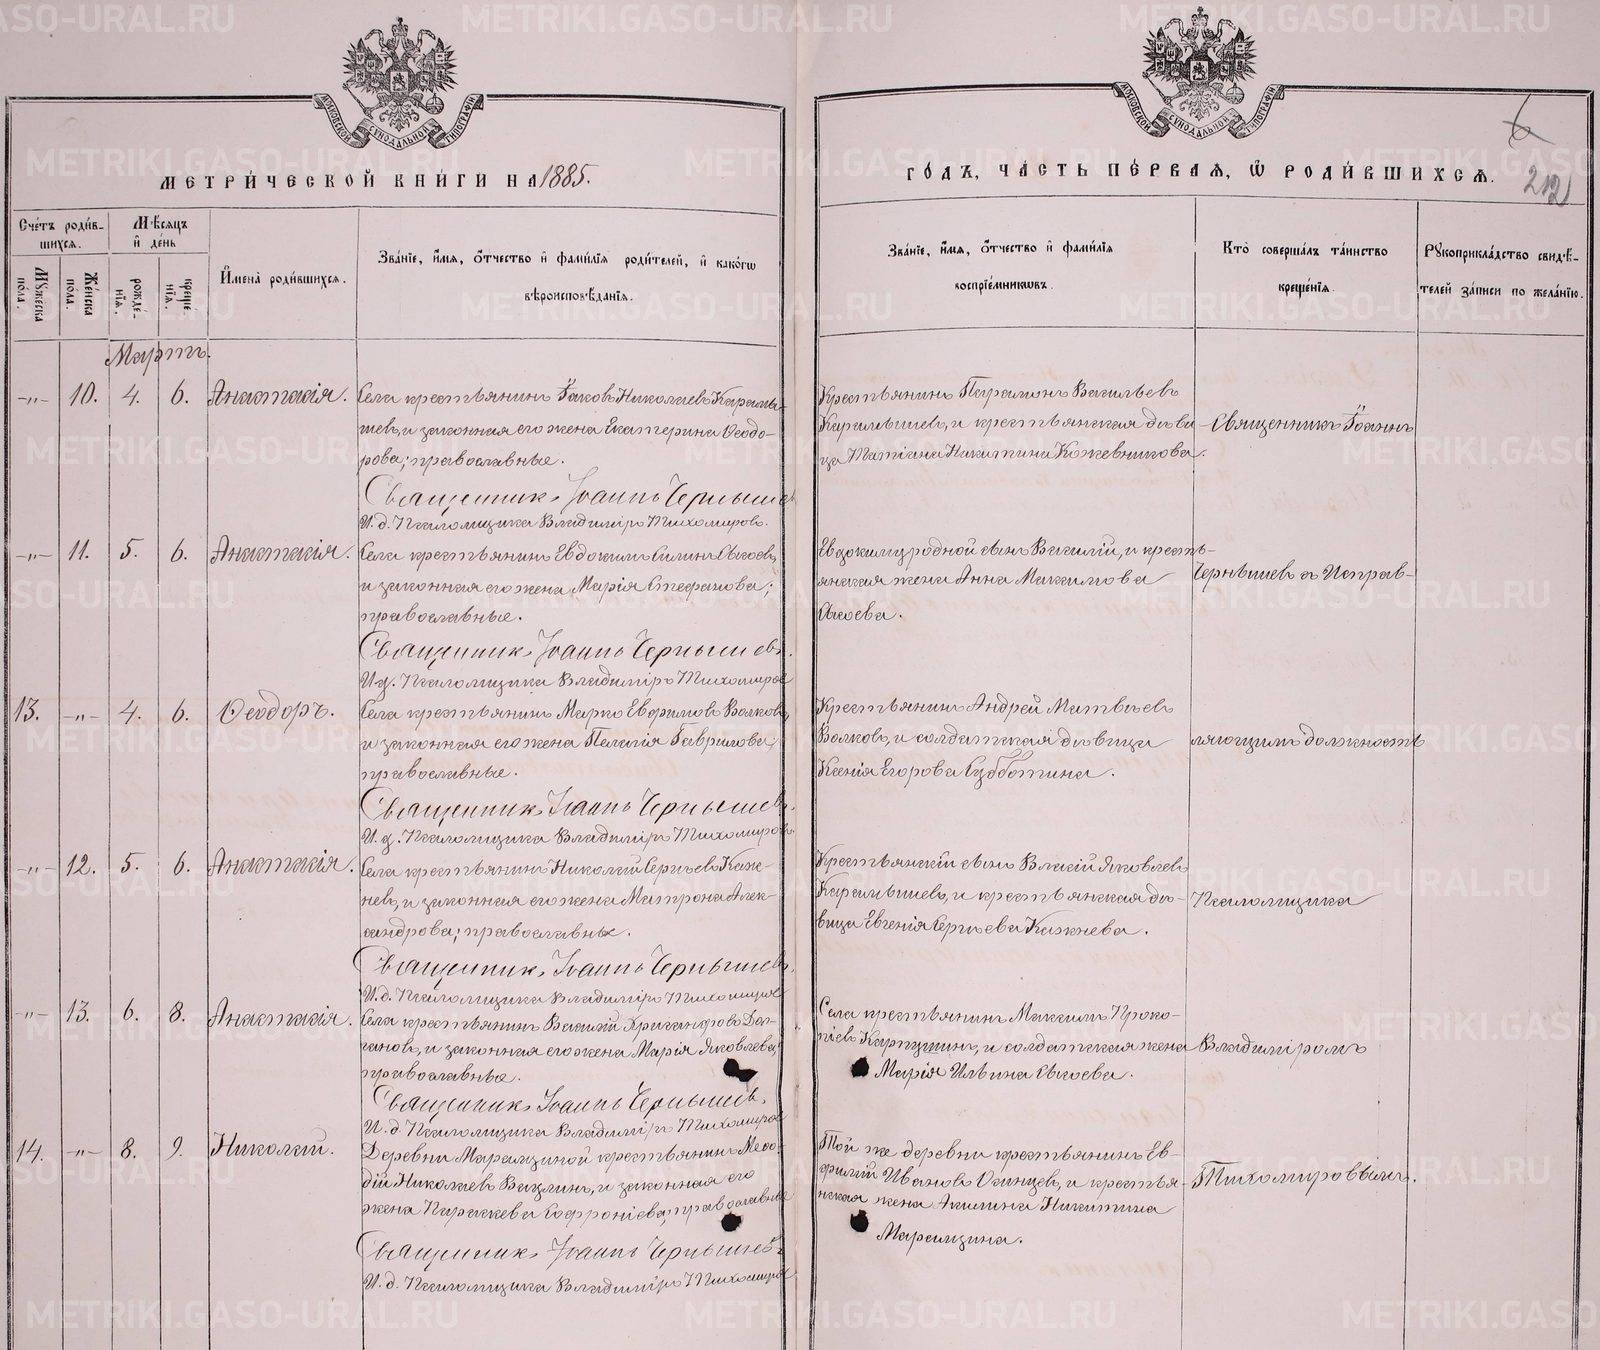 МОСКОВСКОЙ СУНОДАЛЬНОЙ ТИПОГРАФІИ
МОСКОВСКОЙ СУНОДАЛЬНОЙ ТИПОГРАФІИ
6
МЕТРИ́ЧЕСКОЙ КНИ́ГИ НА 1885.
ГО́ДЪ, ЧА́СТЬ ПЕ́РВАѦ, Ѡ РОДИ́ВШИХСѦ.
212
Сче́тъ роди́в-
шихсѧ.
Мѣсѧцъ
и де́нь
Мꙋжеска по́ла.
Же́нска по́ла.
рожде́нїѧ.
креще́нїѧ.
И҆мена̀ роди́вшихсѧ.
Зва́нїе, и҆́мѧ, ѻ҆́тчество и҆ фамі́лїѧ роди́телей, и҆ како́гѡ
вѣроисповѣ́данїѧ.
Зва́нїе, и҆́мѧ, ѻ҆́тчество и҆ фамі́лїѧ
воспрїе́мниковъ.
Кто̀ соверша́лъ та́инство
креще́нїѧ.
Рꙋкоприкла́дство свидѣ́-
телей за́писи по жела́нїю.
Мартъ.
-"- 10. 4. 6. Анастасія. Села крестьянинъ Іаковъ Николаевъ Карамы-
шевъ, и законная его жена Екатерина Ѳеодо-
рова; православные.
Священникъ Іоаннъ Чернышев
И. д. Псаломщика Владиміръ Тихомировъ.
Крестьянинъ Парамонъ Васильевъ
Карамышевъ, и крестьянская дѣви-
ца Татіана Никитина Кожевникова.
Священникъ Іоаннъ
-"- 11. 5. 6. Анастасія. Села крестьянинъ Евдокимъ Силинъ Сысоевъ,
и законная его жена Марія Стефанова;
православные.
Священникъ Іоаннъ Чернышевъ.
И. д. Псаломщика Владиміръ Тихомиров
Евдокима родной сынъ Василій, и кресть-
янская жена Анна Максимова
Сысоева.
Чернышевъ съ Исправ-
13. -"- 4. 6. Ѳеодоръ. Села крестьянинъ Марко Евфимовъ Волковъ,
и законная его жена Пелагія Гаврилова;
православные.
Священникъ Іоаннъ Чернышевъ.
И. д. Псаломщика Владиміръ Тихомировъ
Крестьянинъ Андрей Матвѣевъ
Волковъ, и солдатская дѣвица
Ксенія Егорова Субботина.
ляющимъ должность
-"- 12. 5. 6. Анастасія. Села крестьянинъ Николай Сергѣевъ Каж-
невъ, и законная его жена Матрона Алек-
сандрова; православных.
Священникъ Іоаннъ Чернышевъ.
И. д. Псаломщика Владиміръ Тихомиров
Крестьянскій сынъ Власій Яковлевъ
Карамышевъ, и крестьянская дѣ-
вица Евгенія Сергѣева Кажнева.
Псаломщика
-"- 13. 6. 8. Анастасія. Села крестьянинъ Василій
и законная его жена Марія Яковлева;
православные.
Священникъ Іоаннъ Чернышевъ.
И. д. Псаломщика Владиміръ Тихомиров
Села крестьянинъ Максимъ Проко-
піевъ и солдатская жена
Марія Ильина Сысоева.
Владиміромъ
14. -"- 8. 9. Николай. Деревни Марамзиной крестьянинъ Меѳо-
дій Николаевъ и законная его
жена Параскева Софроніева; православные
Священникъ Іоаннъ Чернышевъ.
И. д. Псаломщика Владиміръ Тихомиров
Той же деревни крестьянинъ Ев-
Ивановъ и крестья-
нская жена Акилина Никитина
Марамзина.
Тихомировымъ.
METRIKI.GASO-URAL.RU